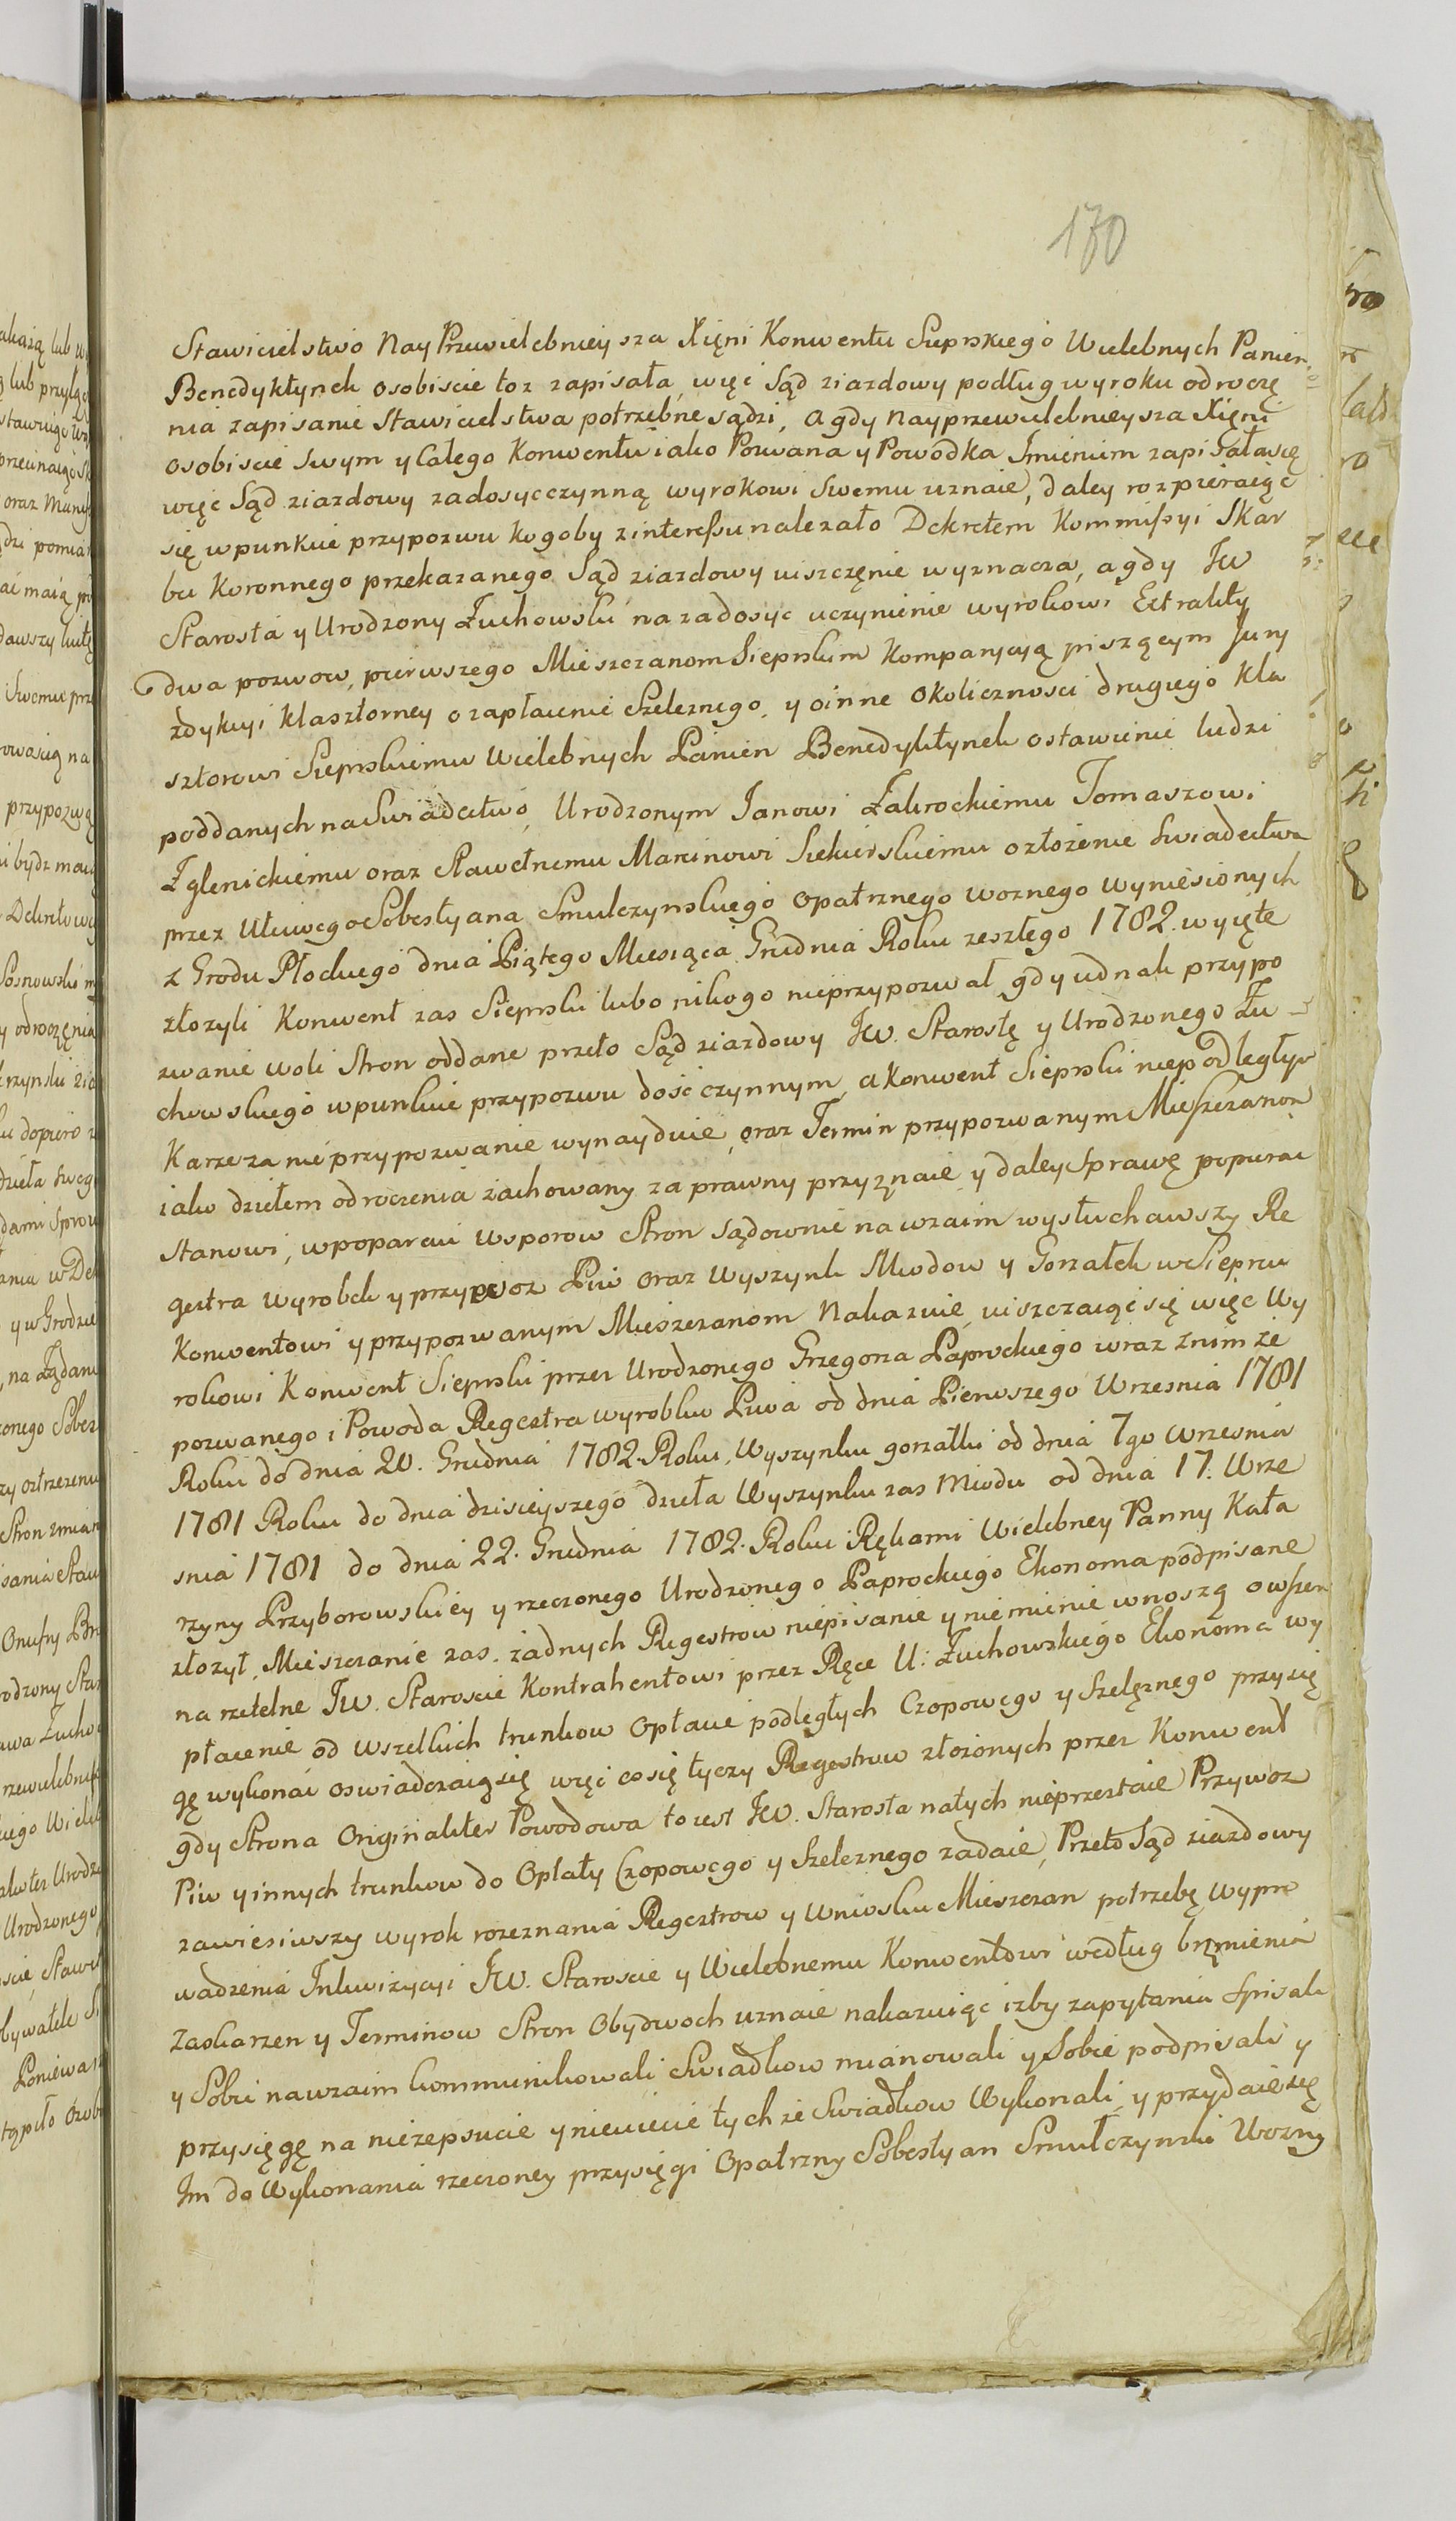 170
Stawicielstwo Nay Przewielebnieysza Xięni Konwentu Sieprskiego Wielebnych Panien
Benedyktynek osobiscie toz zapisała, więc Sąd ziazdowy podług wyroku odroczę
nia zapisanie Stawicielstwa potrzebne sądzi, a gdy Nayprzewielebnieysza Xięni
osobiscie swym y Całego Konwentu iako Pozwana y Powodka Imieniem zapisała się
więc Sąd ziazdowy zadosycczynną wyrokowi Swemu uznaie, daley rozpieraiąc
się wpunkcie przypozwu kogoby zinteressu nalezało Dekretem Kommissyi Skar
bu Koronnego przekazanego Sąd ziazdowy uiszczęnie wyznacza, a gdy JW
Starosta y Urodzony Żuchowski na zadosyc uczynienie wyrokowi Extrakty
dwa pozwow, pierwszego Mieszczanom Sieprskim Kompanycyą piszącym Jury
zdykcyi Klasztorney o zapłacenie Szelęznego, y oinne okolicznosci drugiego Kla
sztorowi Sieprskiemu Wielebnych Panien Benedyktynek ostawienie ludzi
poddanych na Swiadectwo, Urodzonym Janowi Zakrockiemu Tomaszowi
Zglenickiemu oraz Sławetnemu Marcinowi Siekierskiemu ozłożenie swiadectwa
przez Uczciwego Sobestyana Smulczynskiego opatrznego woznego wyniesionych
z Grodu Płockiego dnia Piątego Miesiąca Grudnia Roku zeszłego 1782. wyięte
złozyli Konwent zas Sieprski lubo nikogo nieprzypozwał, gdy iednak przypo
zwanie woli Stron oddane przeto Sąd ziazdowy JW. Starostę y Urodzonego Żu
chowskiego wpunkcie przypozwu dość czynnym, a Konwent Sieprski niepodległym
Karze za nie przypozwanie wynayduie, oraz Termin przypozwanym Mieszczanom
iako dziełem odroczenia zachowany za prawny przyznaie y daley Sprawę popierac
Stanowi, wpoparciu Usporow Stron sądownie na wzaim wysłuchawszy Re
gestra wyrobek y przywoz Piw oraz Wyszynk Miodow y Gorzałek w Sieprcu
Konwentowi y przypozwanym Mieszczanom Nakazuie, uiszczaiąc się więc Wy
rokowi Konwent Sieprski przez Urodzonego Grzegorza Paprockiego wraz znim ze
pozwanego i Powoda Regestra wyrobku Piwa od dnia Pierwszego Wrzesnia 1781
Roku do dnia 20. Grudnia 1782. Roku, Wyszynku gorzałki od dnia 7go Wrzesnia
1781 Roku do dnia dzisieyszego dzieła Wyszynku zas Miodu od dnia 17. Wrze
snia 1781 do dnia 22. Grudnia 1782. Roku Rękami Wielebney Panny Kata
rzyny Przyborowskiey y rzeczonego Urodzonego Paprockiego Ekonoma podpisane
złozył, Mieszczanie zas. żadnych Regestrow niepisanie y niemienie wnoszą owszem
na rzetelne JW. Staroscie Kontrahentowi przez Ręce U: Żuchowskiego Ekonoma wy
płacenie od wszelkich trunkow Opłacie podległych Czopowego y Szelęznego przysię
gę wykonać oswiadczaią się więc co się tyczy Regestrow złożonych przez Konwent
gdy Strona Originaliter Powodowa to iest JW. Starosta natych nieprzestaie Przywoz
Piw y innych trunkow do Opłaty Czopowego y Szelęznego zadaie, Przeto Sąd ziazdowy
zawiesiwszy wyrok rozeznania Regestrow y Wniosku Mieszczan potrzebę wypro
wadzenia Inkwizycyi JW. Staroscie y Wielebnemu Konwentowi według brzmienia
Zaskarzen y Terminow Stron Obydwoch uznaie nakazuiąc izby zapytania Spisali
y Sobie nawzaim kommunikowali Swiadkow mianowali y Sobie podpisali y
przysięgę na niezepsucie y niecięcie tych ze Swiadkow Wykonali, y przydaie się
Im do Wykonania rzeczoney przysięgi Opatrzny Sobestyan Smulczynski Wozny